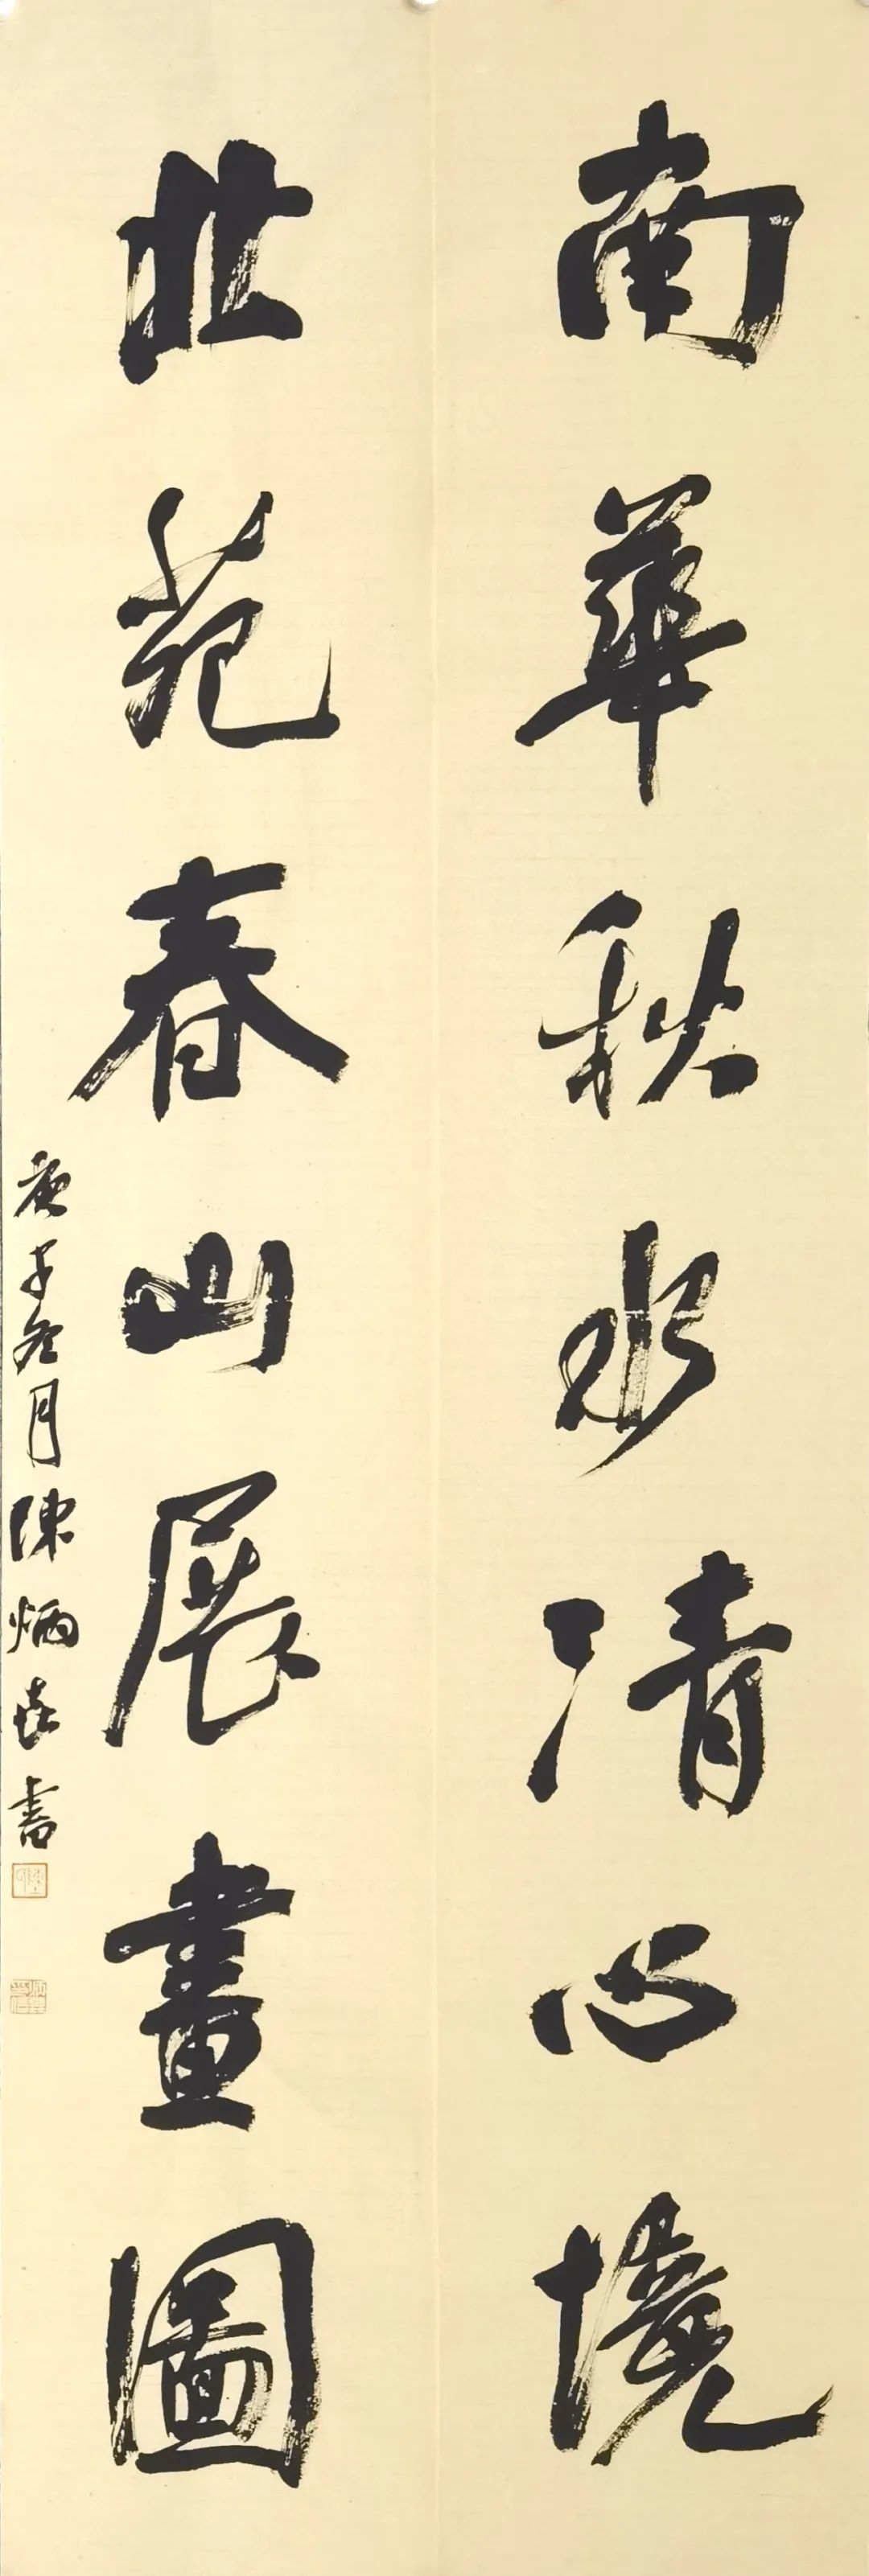 南華秋水清心境
北苑春山展畫圖
庚子冬月陳炳昌書